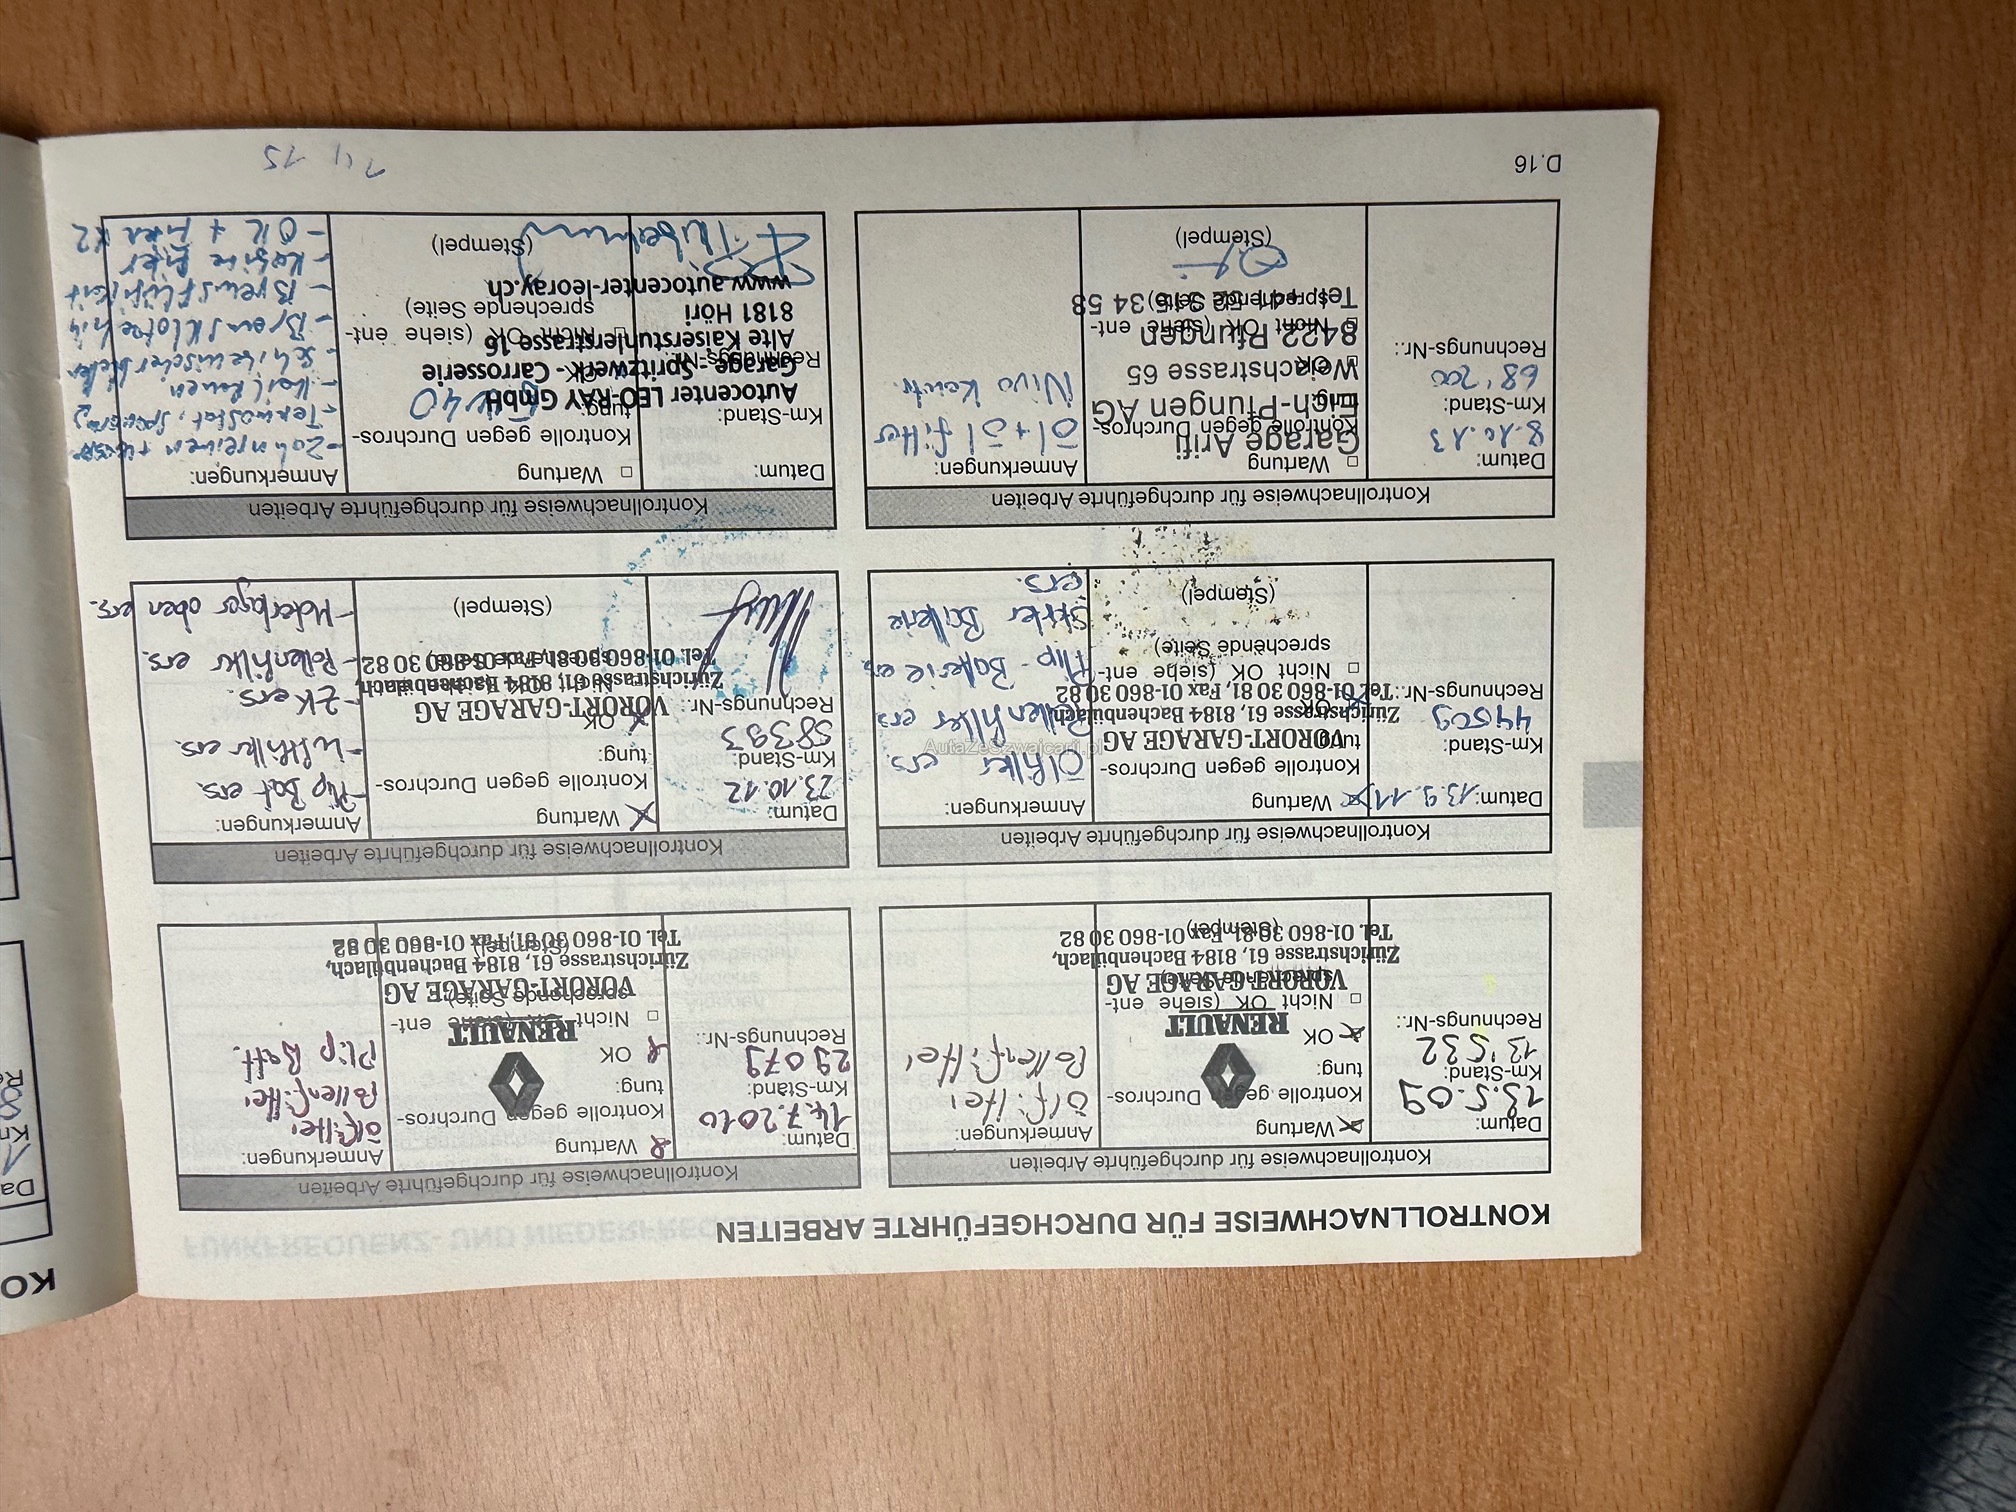 KONTROLLNACHWEISE FÜR DURCHGEFÜHRTE ARBEITEN
Kontrollnachweise für durchgeführte Arbeiten
Datum:
13.5.09
Km-Stand:
13'532
Rechnungs-Nr.:
Wartung
Kontrolle gegen Durchros-
tung:
OK
Nicht OK (siehe ent-
sprechende Seite)
(Stempel)
RENAULT
VORORT-GARAGE AG
Zürichstrasse 61, 8184 Bachenbülach,
Tel. 01-860 30 81, Fax 01-860 30 82
Anmerkungen:
Ölfilter
Pollenfilter
Kontrollnachweise für durchgeführte Arbeiten
Datum:
14.7.2010
Km-Stand:
29079
Rechnungs-Nr.:
Wartung
Kontrolle gegen Durchros-
tung:
OK
Nicht OK (siehe ent-
sprechende Seite)
(Stempel)
RENAULT
VORORT-GARAGE AG
Zürichstrasse 61, 8184 Bachenbülach,
Tel. 01-860 30 81, Fax 01-860 30 82
Anmerkungen:
Ölfilter
Pollenfilter
Plip Batt.
Kontrollnachweise für durchgeführte Arbeiten
Datum: 13.9.11
Km-Stand:
44509
Rechnungs-Nr.:
Wartung
Kontrolle gegen Durchros-
tung:
OK
Nicht OK (siehe ent-
sprechende Seite)
(Stempel)
VORORT-GARAGE AG
Zürichstrasse 61, 8184 Bachenbülach,
Tel. 01-860 30 81, Fax 01-860 30 82
Anmerkungen:
Ölfilter ers.
Pollenfilter ers.
Plip-Batterie ers.
Starter Batterie
ers.
Kontrollnachweise für durchgeführte Arbeiten
Datum:
23.10.12
Km-Stand:
58393
Rechnungs-Nr.:
Wartung
Kontrolle gegen Durchros-
tung:
OK
(Stempel)
VORORT-GARAGE AG
Zürichstrasse 61, 8184 Bachenbülach,
Tel. 01-860 30 81, Fax 01-860 30 82
Anmerkungen:
- Plip Bat ers.
- Luftfilter ers.
- ZK ers.
- Pollenfilter ers.
- Motorlager oben ers.
Kontrollnachweise für durchgeführte Arbeiten
Datum:
8.10.13
Km-Stand:
68'200
Rechnungs-Nr.:
Wartung
Kontrolle gegen Durchros-
tung:
OK
Nicht OK (siehe ent-
sprechende Seite)
(Stempel)
Garage Arifi
Eich-Pfungen AG
Weiachstrasse 65
8422 Pfungen
Anmerkungen:
Öl + Ölfilter
Nivo Kontr.
Kontrollnachweise für durchgeführte Arbeiten
Datum:
Km-Stand:
Rechnungs-Nr.:
Wartung
Kontrolle gegen Durchros-
tung:
OK
Nicht OK (siehe ent-
sprechende Seite)
(Stempel)
Autocenter LEO-RAY GmbH
Garage - Spritzwerk - Carrosserie
Alte Kaiserstuhlerstrasse 16
8181 Höri
www.autocenter-leoray.ch
Anmerkungen:
- Zahnriemen
- Termostat,
- Keilriemen
- Bremsklötze
- Bremsflüssigkeit
D.16
AutaZeSzwajcarii.pl